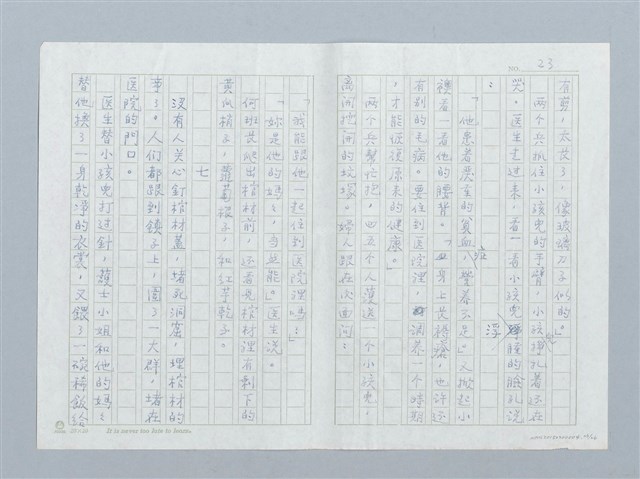 NO. 23
有剪，太長了，像玻璃刀子似的。」
兩个兵抓住小孩兒的手臂，小孩兒掙扎著还在
哭。医生走过来，看一看小孩兒浮腫的臉孔說
：
「他患着嚴重的貧血症，營養不足。」又掀起小
孩看一看他的腰背。「血身上長梅瘡，也許还
有別的毛病。要住到医院裡，調养一个時期
，才能恢復原來的健康。」
兩个兵幫忙把，四五个人護送一个小孩兒，
离開挖開的坟塚。婦人跟在後面问：
「我能跟他一起住到医院裡嗎…」
「妳是他的媽媽，当然能。」医生說。
何班長爬出棺材前，还看見棺材裡有剩下的
黃瓜
，蘿蔔
，和紅芋乾子。
七
沒有人关心釘棺材蓋，堵死洞窟，埋棺材的
事了。人们都跟到鎮子上，圍了一大群，堵在
医院的門口。
医生替小孩兒打过針，護士小姐和他的媽媽
替他換了一身乾淨的衣裳，又餵了一碗稀飯給
It is never too late to learn.